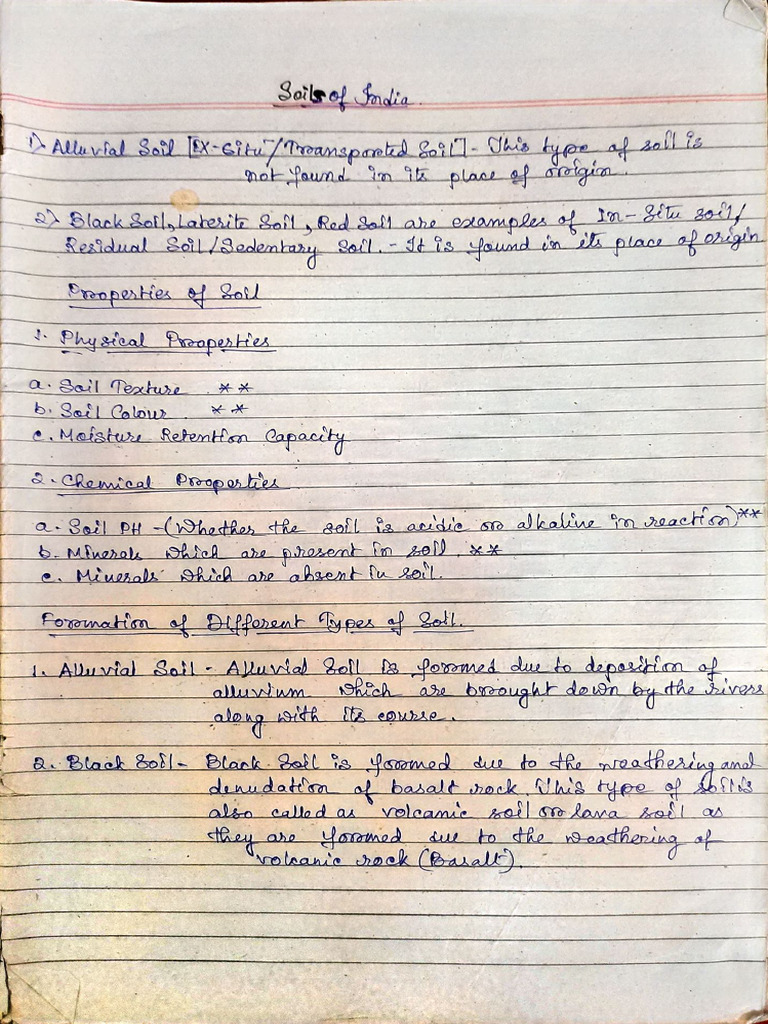 Soils of India.
1) Alluvial Soil [EX-Situ/Transported Soil] - This type of soil is
not found in its place of origin.
2) Black Soil, Laterite Soil, Red Soil are examples of In-Situ soil/
Residual Soil/Sedentary Soil. - It is found in its place of origin
Properties of Soil
1. Physical Properties
a. Soil Texture **
b. Soil Colour **
c. Moisture Retention Capacity
2. Chemical Properties
a. Soil PH - (Whether the soil is acidic or alkaline in reaction)**
b. Minerals which are present in soil **
c. Minerals which are absent in soil.
Formation of Different Types of Soil.
1. Alluvial Soil - Alluvial Soil is formed due to deposition of
alluvium which are brought down by the rivers
along with its course.
2. Black Soil - Black Soil is formed due to the weathering and
denudation of basalt rock. This type of soil is
also called as volcanic soil or lava soil as
they are formed due to the weathering of
volcanic rock (Basalt).